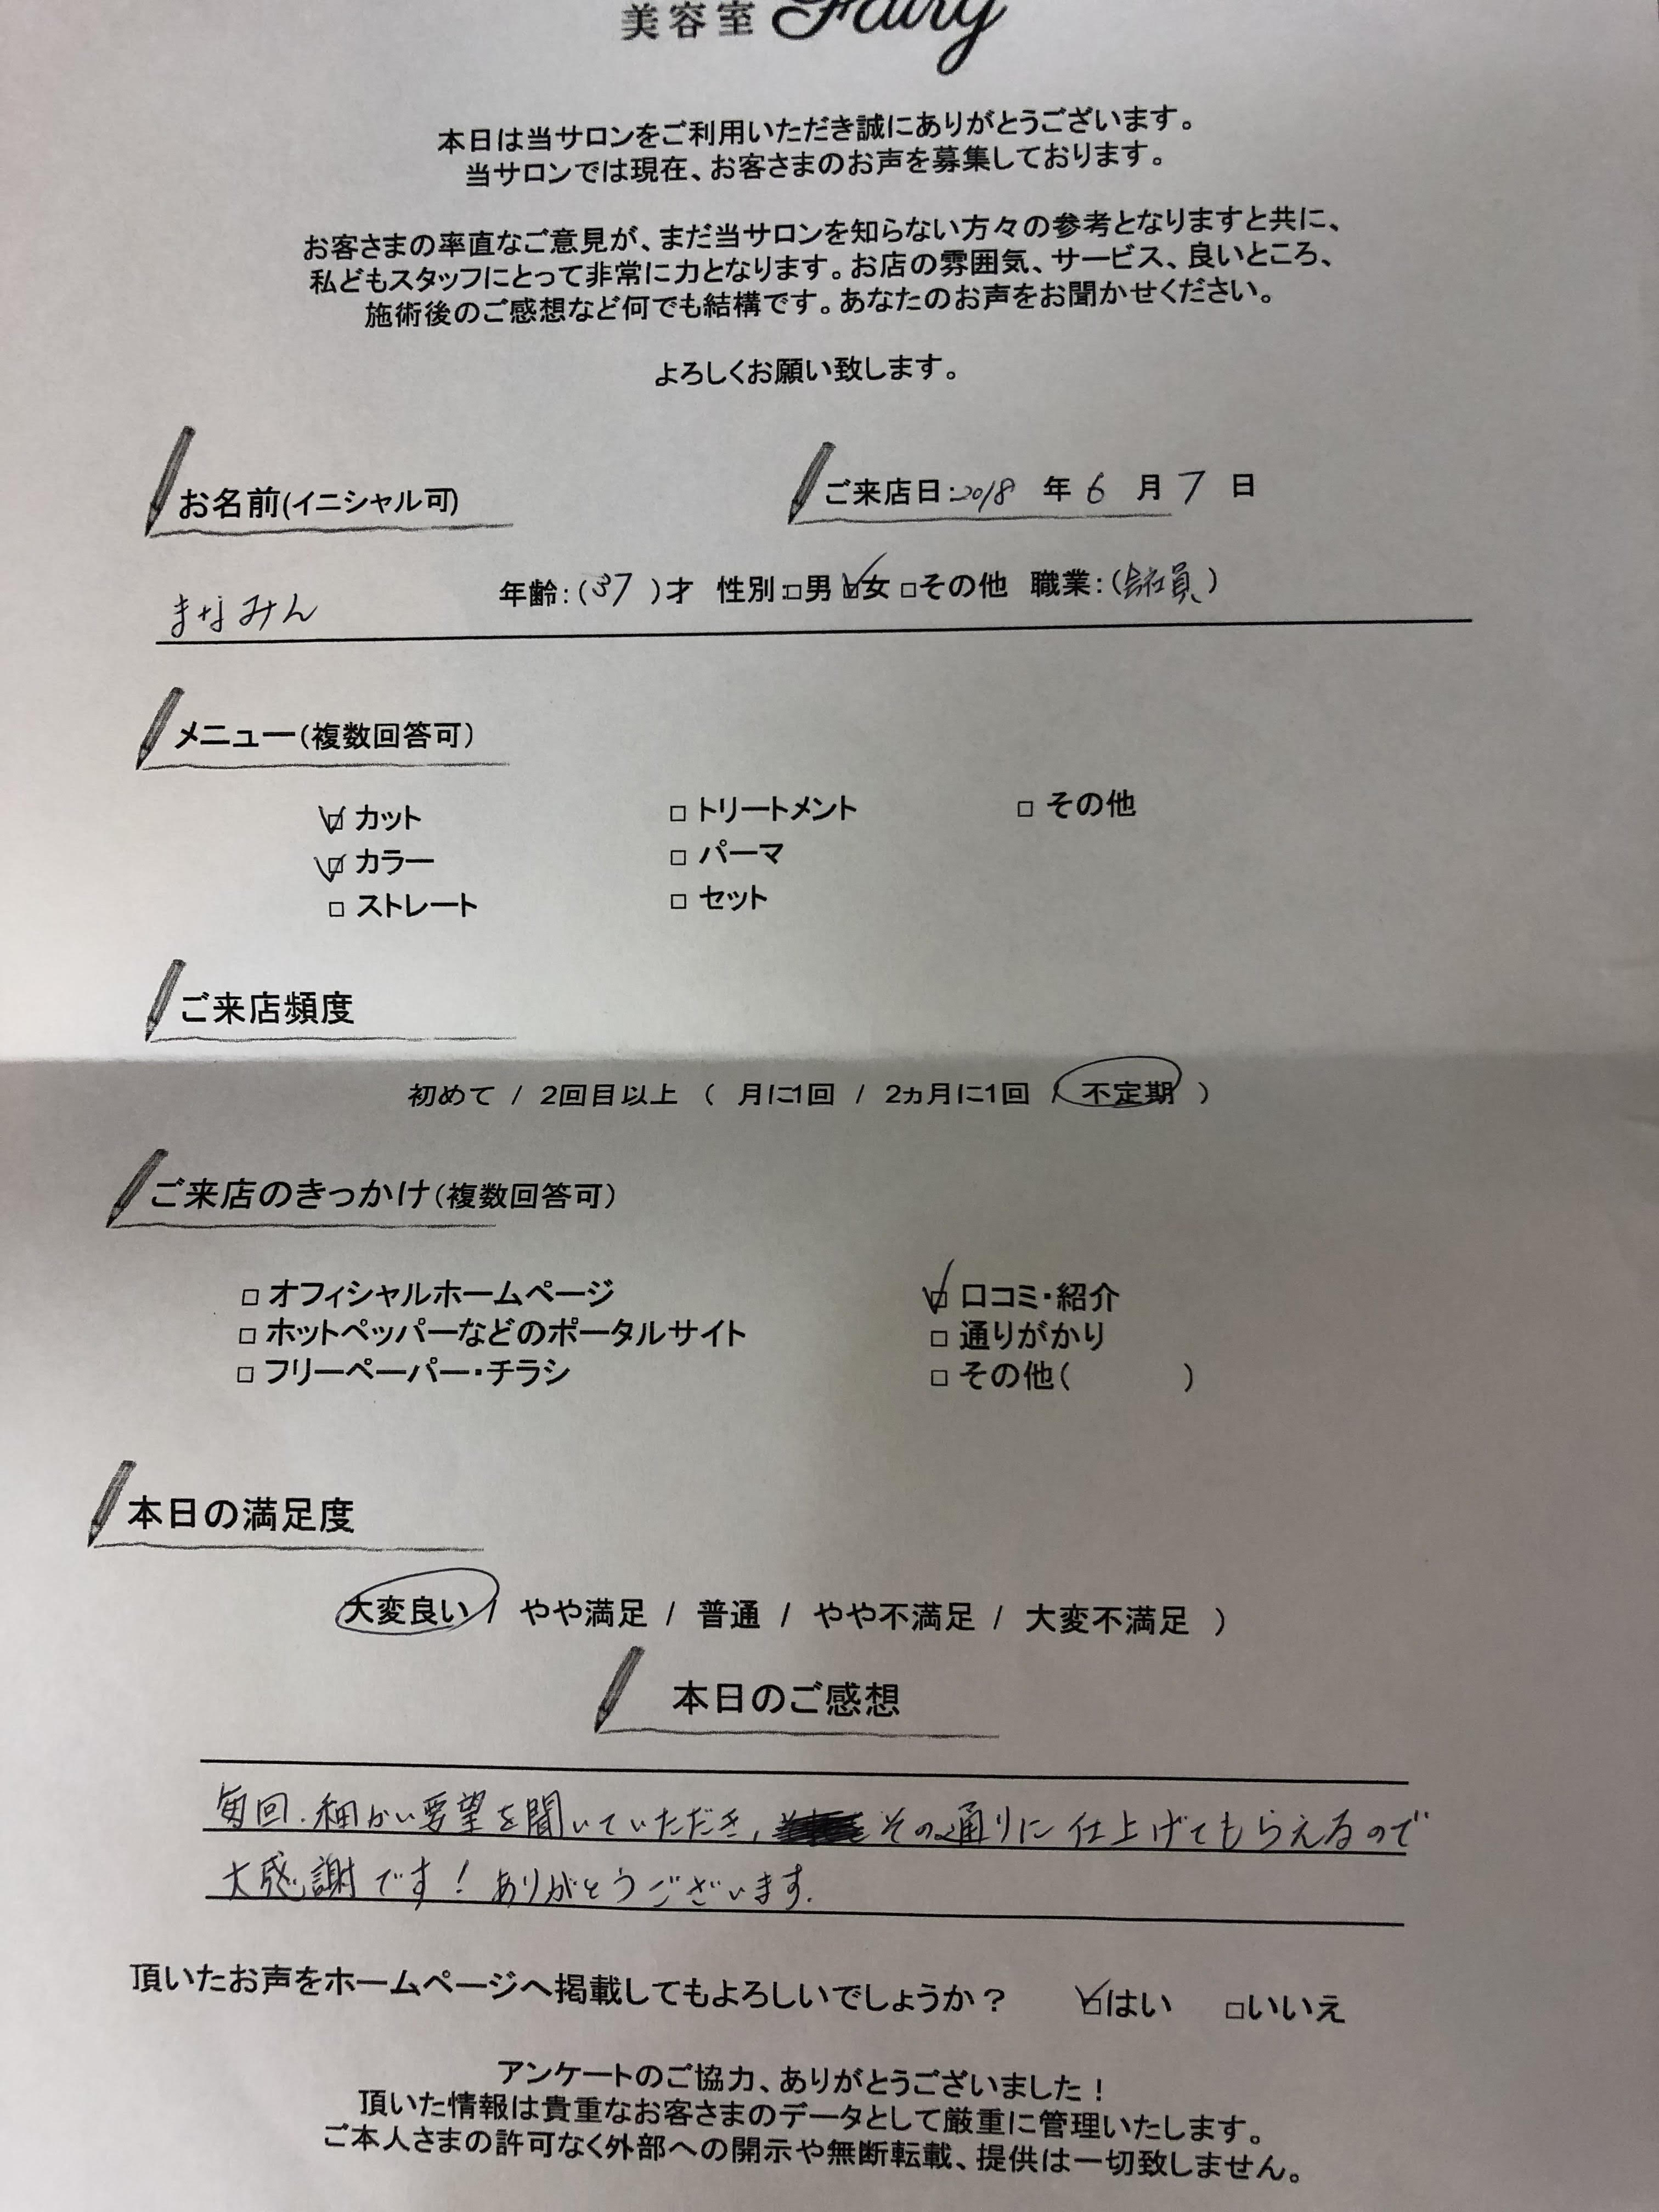 美容室 Fairy
本日は当サロンをご利用いただき誠にありがとうございます。
当サロンでは現在、お客さまのお声を募集しております。
お客さまの率直なご意見が、まだ当サロンを知らない方々の参考となりますと共に、
私どもスタッフにとって非常に力となります。お店の雰囲気、サービス、良いところ、
施術後のご感想など何でも結構です。あなたのお声をお聞かせください。
よろしくお願い致します。
お名前(イニシャル可) ご来店日:2018 年 6 月 7 日
まなみん 年齢:(37)才 性別:□男 ☑女 □その他 職業:(会社員)
メニュー(複数回答可)
☑ カット □ トリートメント □ その他
☑ カラー □ パーマ
□ ストレート □ セット
ご来店頻度
初めて / 2回目以上 ( 月に1回 / 2ヵ月に1回 / 不定期 )
ご来店のきっかけ(複数回答可)
□ オフィシャルホームページ ☑ 口コミ・紹介
□ ホットペッパーなどのポータルサイト □ 通りがかり
□ フリーペーパー・チラシ □ その他( )
本日の満足度
大変良い / やや満足 / 普通 / やや不満足 / 大変不満足 )
本日のご感想
毎回、細かい要望を聞いていただき、その通りに仕上げてもらえるので
大感謝です!ありがとうございます。
頂いたお声をホームページへ掲載してもよろしいでしょうか? ☑はい □いいえ
アンケートのご協力、ありがとうございました!
頂いた情報は貴重なお客さまのデータとして厳重に管理いたします。
ご本人さまの許可なく外部への開示や無断転載、提供は一切致しません。